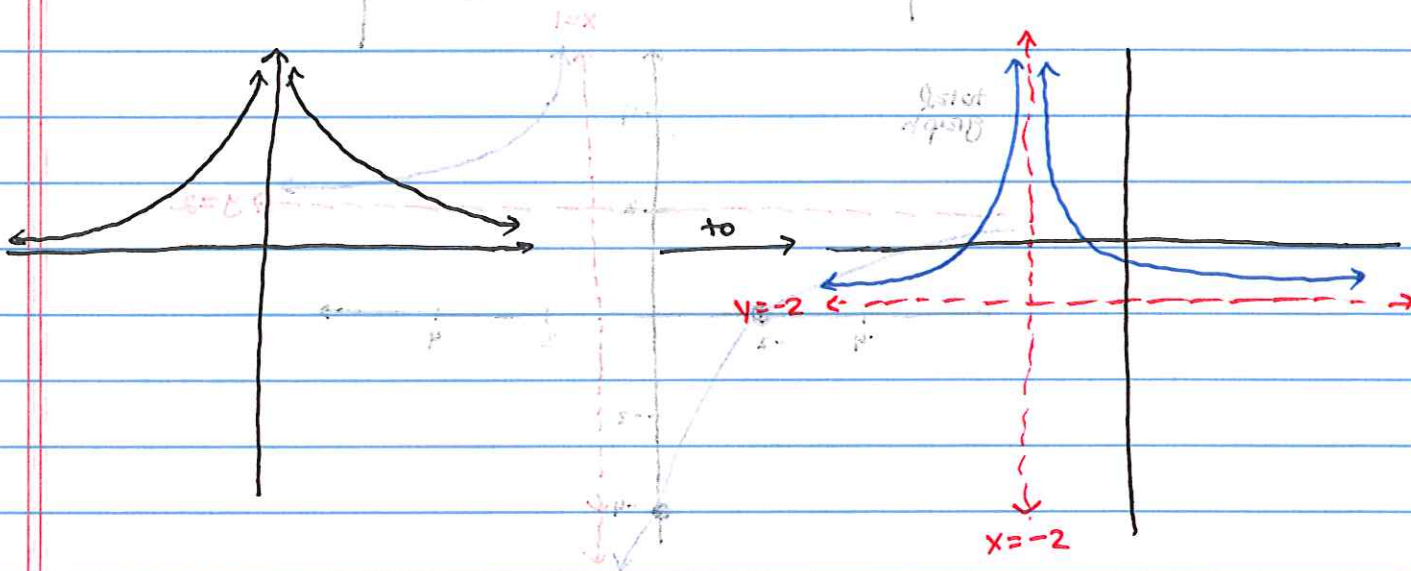 to
y=-2
x=-2